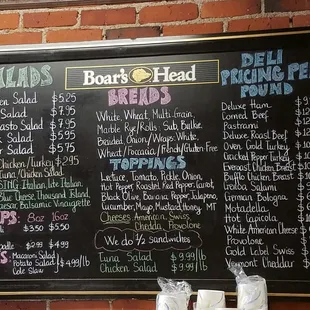 Boar's Head
SALADS
en Salad $5.25
Salad $7.95
asto Salad $7.95
Salad $5.95
Salad $5.75
Chicken/Turkey $2.95
Tuna/Chicken Salad
Italian, lite Italian
Blue Cheese, Thousand Island,
Caesar, Balsamic Vinaigrette
8oz 16oz
$3.50 $5.50
Noodle $2.99 $4.99
Macaroni Salad
Potato Salad $4.99/lb
Cole Slaw
BREADS
White, Wheat, Multi Grain,
Marble Rye/Rolls: Sub, Bulkie,
Braided, Onion/Wraps:
Wheat/Focaccia/Fendly/Gluten Free
TOPPINGS
Lettuce, Tomato, Pickle, Onion,
Hot Pepper, Roasted Red Pepper, Carrot,
Black Olive, Banana Pepper, Jalapeno,
Cucumber, Mayo, Mustard, Honey
Cheeses: American, Swiss,
Cheddar, Provolone
We do 1/2 sandwiches
Tuna Salad $9.99/lb
Chicken Salad $9.99/lb
DELI
PRICING PER
POUND
Deluxe Ham
Corned Beef
Pastrami
Deluxe Roast Beef
Oven Gold Turkey
Cracked Pepper Turkey
Everroast Chicken Breast
Buffalo Chicken Breast
Genoa Salami
German Bologna
Mortadella
Hot Capicola
White American Cheese
Provolone
Gold Label Swiss
Vermont Cheddar